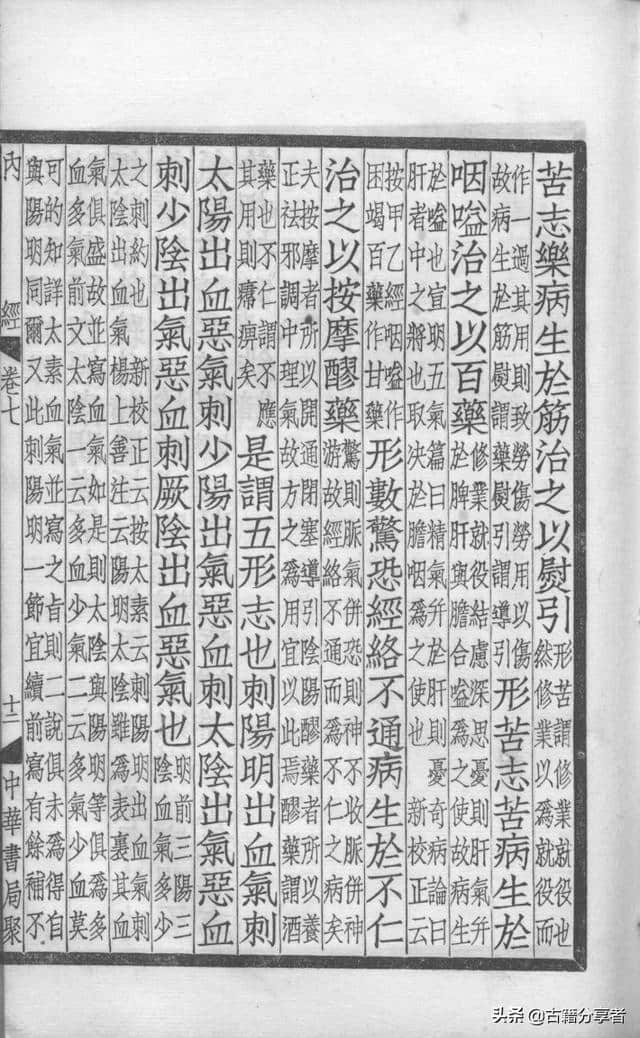 苦志樂病生於筋治之以熨引
形苦謂修業就役也
然修業以為就役而
作一過其用則致勞傷勞用以傷
故病生於筋熨謂藥熨引謂導引
形苦志苦病生於
咽嗌治之以百藥
修業就役結慮深思憂則肝氣并
於脾肝與膽合嗌為之使故病生
於嗌也宣明五氣篇曰精氣并於肝則憂奇病論曰
肝者中之將也取決於膽咽為之使也 新校正云
按甲乙經咽嗌作
困竭百藥作甘藥
形數驚恐經絡不通病生於不仁
治之以按摩醪藥
驚則脈氣併恐則神不收脈併神
游故經絡不通而為不仁之病矣
夫按摩者所以開通閉塞導引陰陽醪藥者所以養
正祛邪調中理氣故方之為用宜以此焉醪藥謂酒
藥也不仁謂不應
其用則痹矣
是謂五形志也刺陽明出血氣刺
太陽出血惡氣刺少陽出氣惡血刺太陰出氣惡血
刺少陰出氣惡血刺厥陰出血惡氣也
明前三陽三
陰血氣多少
之刺約也 新校正云按太素云刺陽明出血氣刺
太陰出血氣楊上善注云陽明太陰雖為表裏其血
氣俱盛故並寫血氣如是則太陰與陽明等俱為多
血多氣前文太陰一云多血少氣二云多氣少血莫
可的知詳太素血氣並寫之旨則二說俱未為得自
與陽明同爾又此刺陽明一節宜續前寫有餘補不
內經 卷七 十二 中華書局聚
头条@古籍分享者